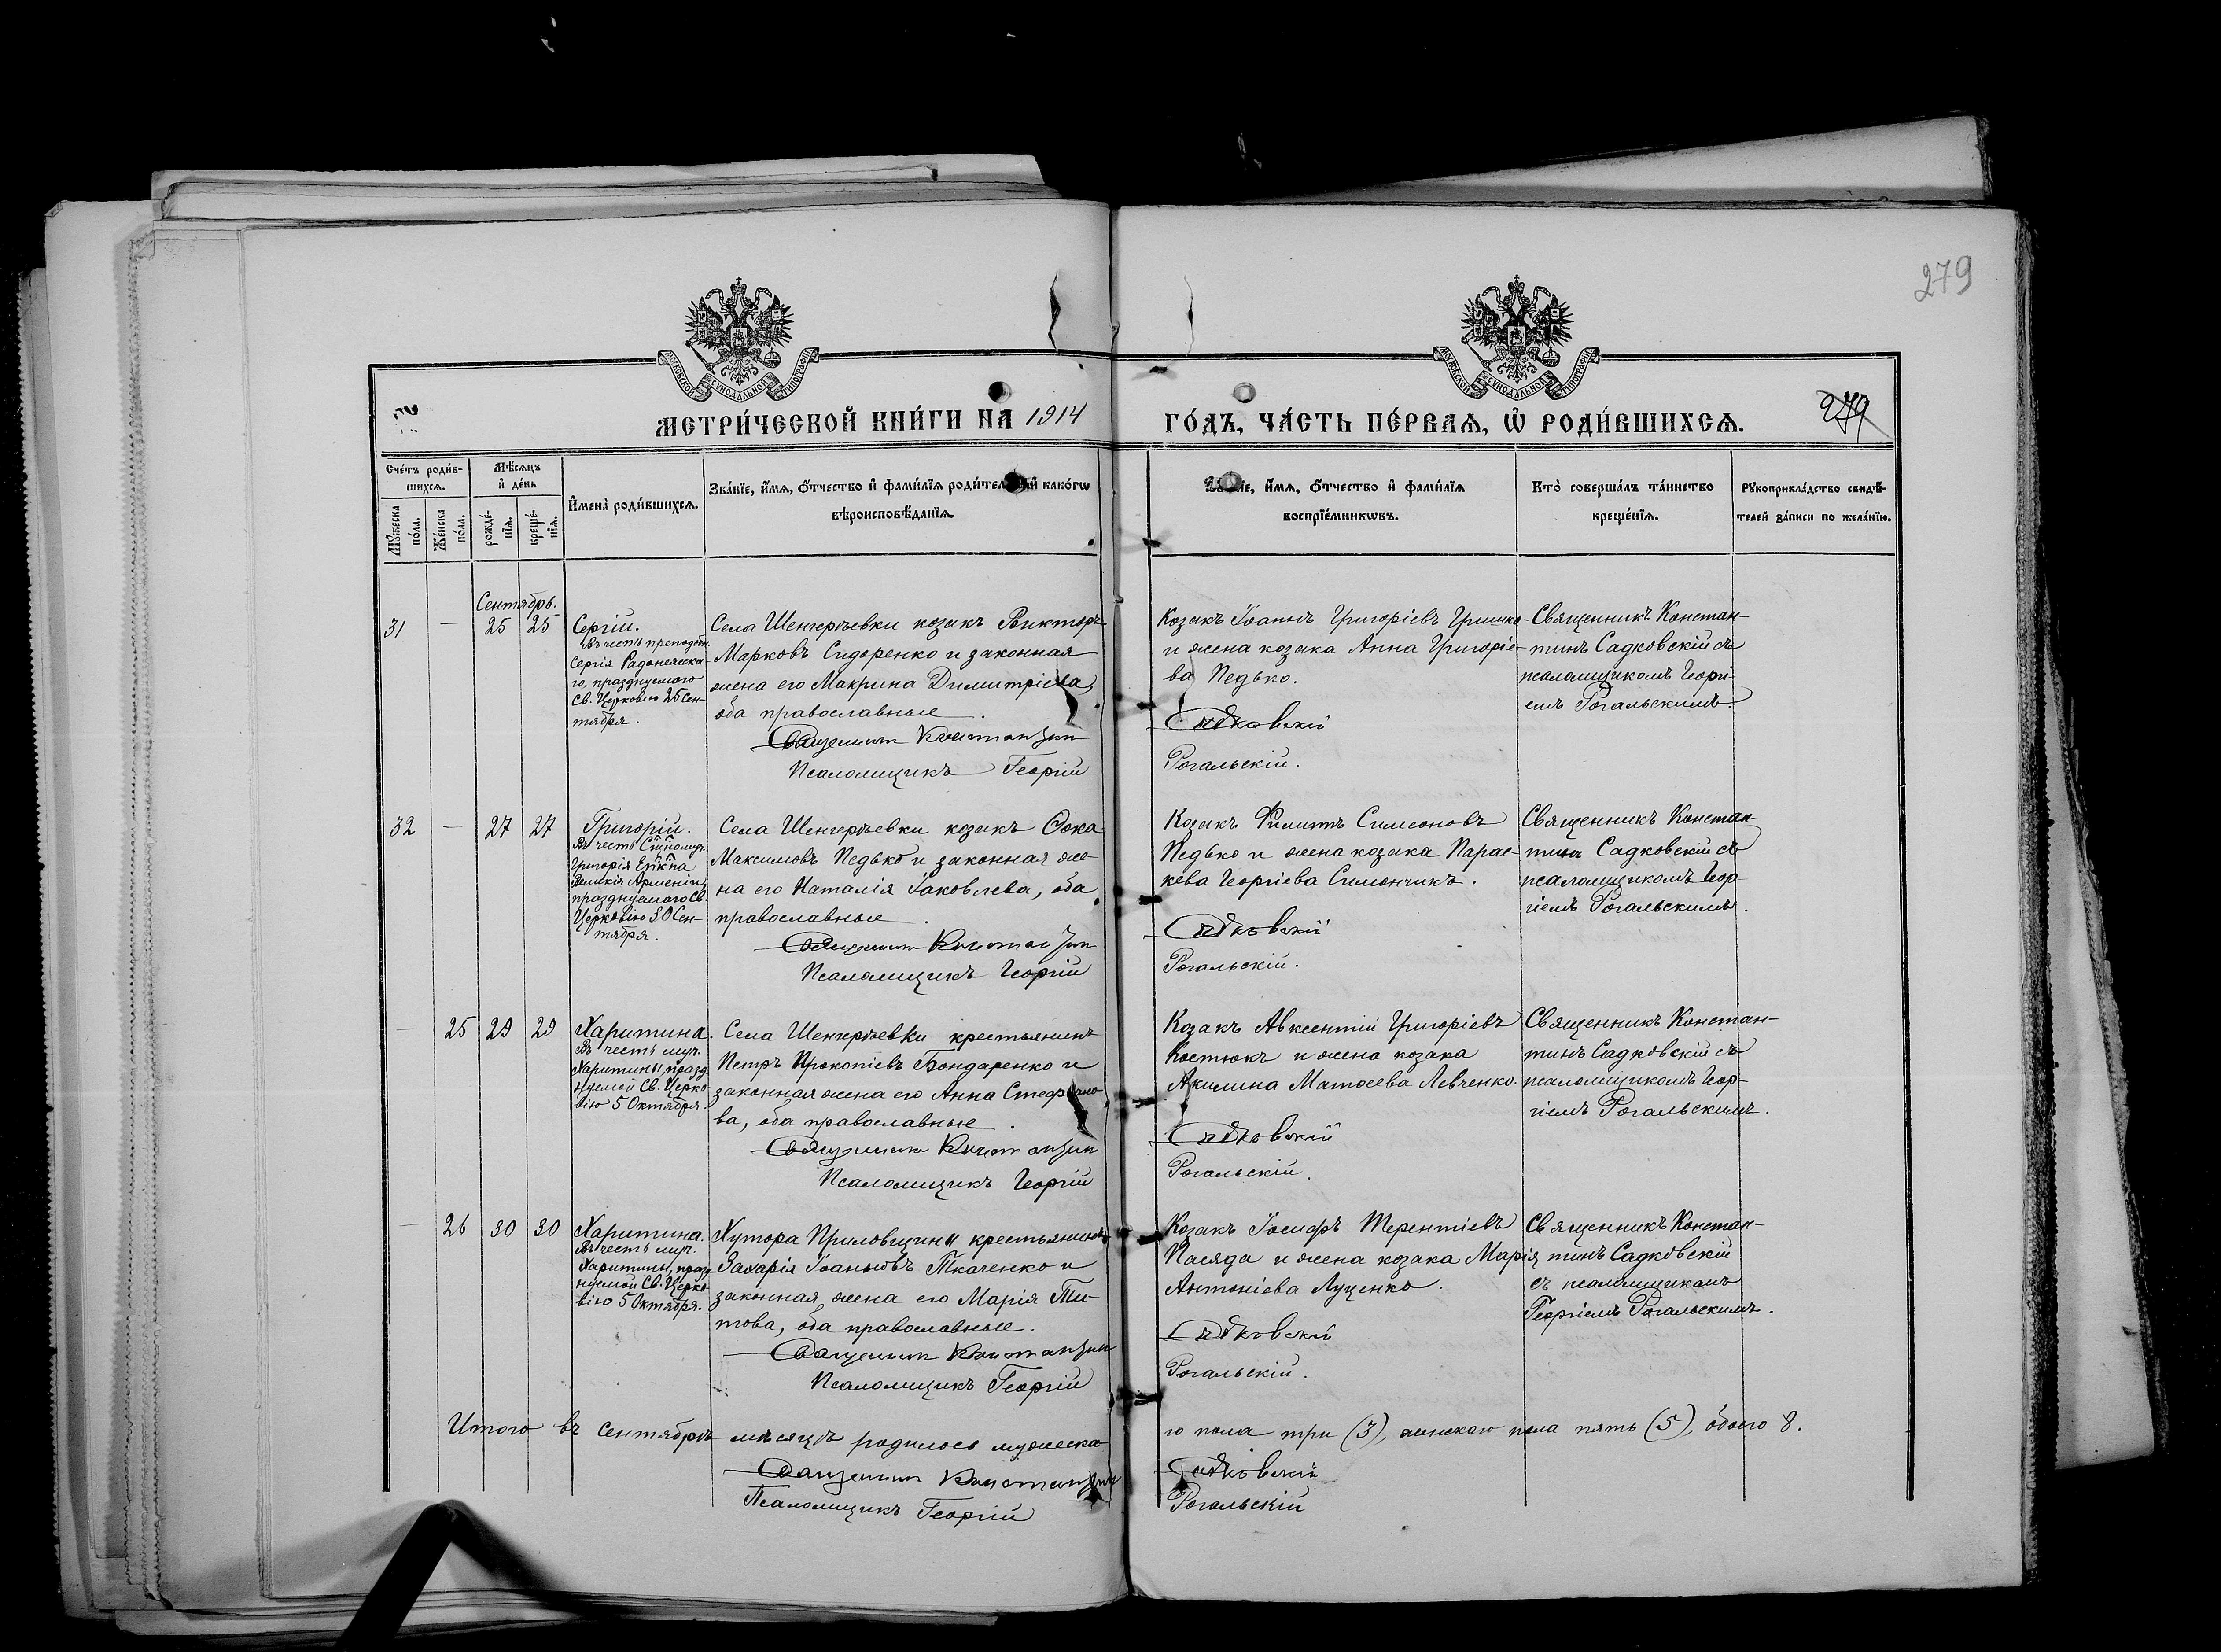 279
279
МЕТРИ́ЧЕСКОЙ КНИ́ГИ НА 1914
ГО́ДЪ, ЧА́СТЬ ПЕ́РВАѦ, Ѡ РОДИ́ВШИХСѦ.
Сче́тъ роди́в-
шихсѧ.
Мѣ́сѧцъ
и де́нь
Мꙋ́жеска
по́ла.
Же́нска
по́ла.
рожде́-
нїѧ.
креще́-
нїѧ.
Имена̀ роди́вшихсѧ.
Зва́нїе, и́мѧ, о́тчество и фами́лїѧ роди́телей и како́гѡ
вѣроисповѣ́данїѧ.
Зва́нїе, и́мѧ, о́тчество и фами́лїѧ
воспрїе́мникѡвъ.
Кто̀ соверша́лъ та́инство
креще́нїѧ.
Рꙋкоприкла́дство свидѣ́-
телей за́писи по жела́нїю.
Сентябрь.
31 — 25 25
Сергій.
Въ честь преподобн.
Сергія Радонежска-
го, празднуемого
Св. Церковію 25 Сен-
тября.
Села Шенгерѣевки козакъ Викторъ
Марковъ Сидоренко и законная
жена его Макрина Димитріева,
оба православные.
Священникъ Константин
Псаломщикъ Георгій
Козакъ Іоаннъ Григоріевъ Гришко
и жена козака Анна Григоріе-
ва Педько.
Садковскій
Рогальскій.
Священникъ Констан-
тинъ Садковскій съ
псаломщикомъ Георгі-
емъ Рогальскимъ.
32 — 27 27
Григорій.
Въ честь Сщномуч.
Григорія Епкпа
Великія Арменіи,
празднуемого Св.
Церковію 30 Сен-
тября.
Села Шенгерѣевки козакъ Ѳока
Максимовъ Педько и законная же-
на его Наталія Іаковлева, оба
православные.
Священникъ Константин
Псаломщикъ Георгій
Козакъ Филиппъ Симеоновъ
Педько и жена козака Парас-
кева Георгіева Симончикъ.
Садковскій
Рогальскій.
Священникъ Констан-
тинъ Садковскій съ
псаломщикомъ Геор-
гіемъ Рогальскимъ.
— 25 29 29
Харитина.
Въ честь муч.
Харитины, празд-
нуемой Св. Церко-
вію 5 Октября.
Села Шенгерѣевки крестьянинъ
Петръ Прокопіевъ Бондаренко и
законная жена его Анна Стефано-
ва, оба православные.
Священникъ Константин
Псаломщикъ Георгій
Козакъ Авксентій Григоріевъ
Костюкъ и жена козака
Акилина Матѳеева Левченко.
Садковскій
Рогальскій.
Священникъ Констан-
тинъ Садковскій съ
псаломщикомъ Геор-
гіемъ Рогальскимъ.
— 26 30 30
Харитина.
Въ честь муч.
Харитины, празд-
нуемой Св. Церко-
вію 5 Октября.
Хутора Приловщины крестьянинъ
Захарія Іоанновъ Ткаченко и
законная жена его Марія Ти-
това, оба православные.
Священникъ Константин
Псаломщикъ Георгій
Козакъ Іосифъ Терентіевъ
Пасяда и жена козака Марія
Антоніева Луценко.
Садковскій
Рогальскій.
Священникъ Констан-
тинъ Садковскій
съ псаломщикомъ
Георгіемъ Рогальскимъ.
Итого въ Сентябрѣ мѣсяцѣ родилось мужеска-
го пола три (3), женскаго пола пять (5), обоего 8.
Священникъ Константин
Псаломщикъ Георгій
Садковскій
Рогальскій